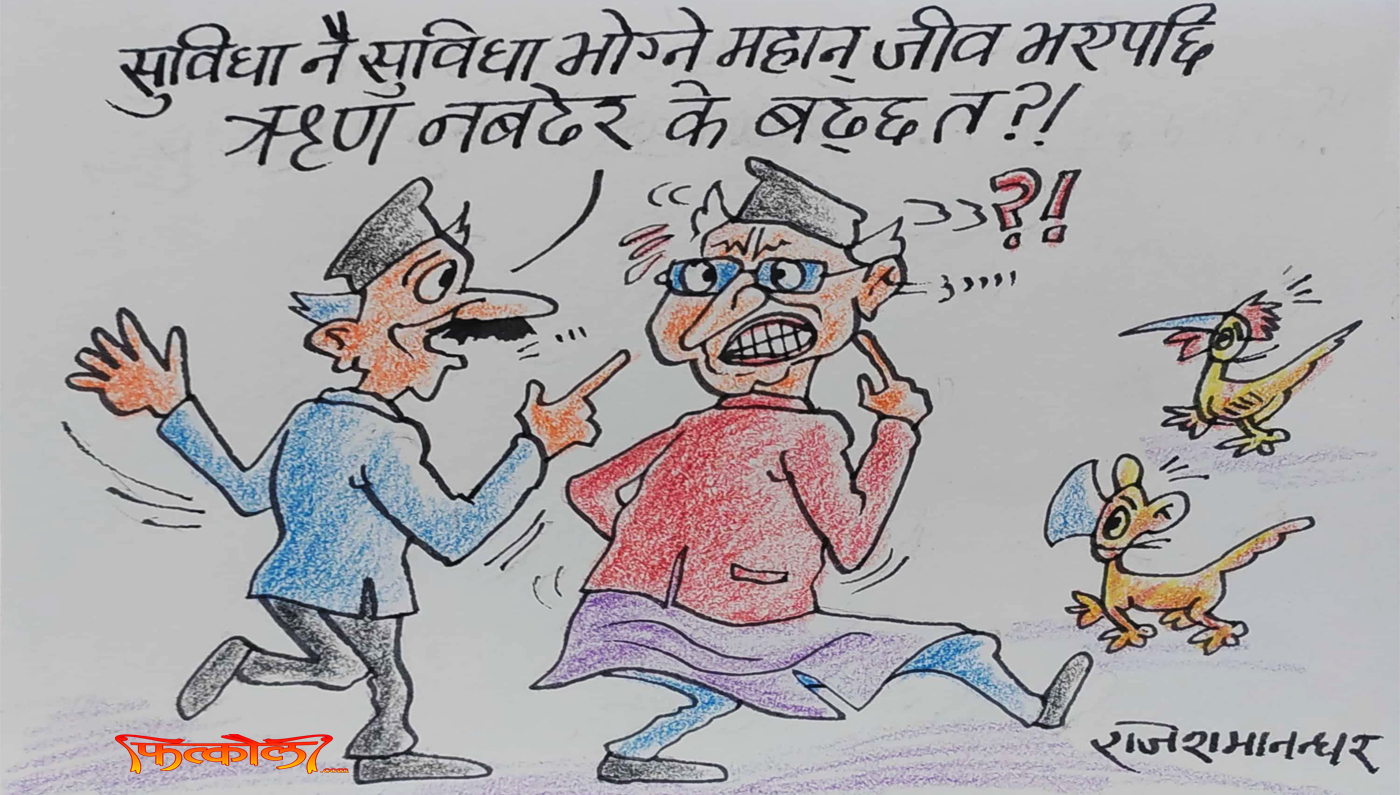 सुविधा नै सुविधा भोग्ने महान् जीव भएपछि
ऋण नबढेर के बढ्छ त?!
?!
फत्कौला.com
राजेशमानन्धर